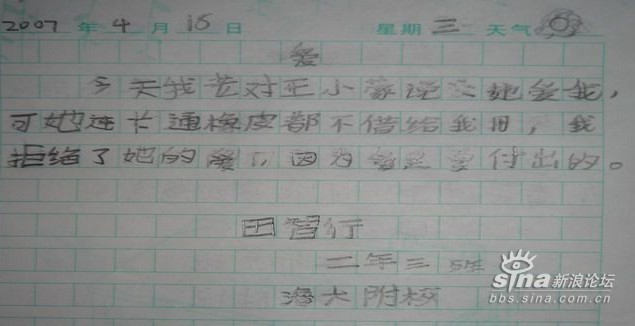 2007 年 4 月 18 日 星期 三 天气
爱
今天我 对王小蒙说 她爱我，
可她连卡通橡皮都不借给我用，我
拒绝了她的爱，因为爱是要付出的。
田智行
二年三班
海大附校
sina 新浪论坛
bbs.sina.com.cn